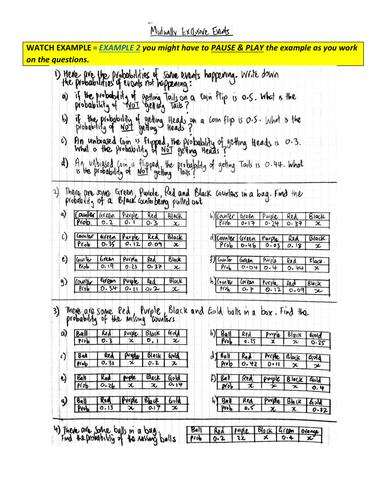 Mutually Exclusive Events
WATCH EXAMPLE = EXAMPLE 2 you might have to PAUSE & PLAY the example as you work
on the questions.
1) Here are the probabilities of some events happening. Write down
the probabilities of events not happening.
a) if the probability of getting Tails on a coin flip is 0.5. What is the
probability of NOT getting Tails?
b) if the probability of getting Heads on a coin flip is 0.5. What is the
probability of NOT getting Heads?
c) An unbiased coin is flipped, the probability of getting Heads is 0.3.
What is the probability of NOT getting Heads?
d) An unbiased coin is flipped, the probability of getting Tails is 0.46. What
is the probability of NOT getting Tails?
2) There are some Green, Purple, Red and Black counters in a bag. Find the
probability of a Black counter being pulled out
a) Counter Green Purple Red Black
Prob 0.2 0.1 0.3 x
b) Counter Green Purple Red Black
Prob 0.17 0.24 0.37 x
c) Counter Green Purple Red Black
Prob 0.35 0.12 0.09 x
d) Counter Green Purple Red Black
Prob 0.46 0.03 0.18 x
e) Counter Green Purple Red Black
Prob 0.19 0.23 0.27 x
f) Counter Green Purple Red Black
Prob 0.04 0.4 0.44 x
g) Counter Green Purple Red Black
Prob 0.34 0.11 0.2 x
h) Counter Green Purple Red Black
Prob 0.7 0.12 0.09 x
3) There are some Red, Purple, Black and Gold balls in a box. Find the
probability of the missing counters
a) Ball Red Purple Black Gold
Prob 0.3 x 0.1 x
b) Ball Red Purple Black Gold
Prob 0.25 x x 0.25
c) Ball Red Purple Black Gold
Prob 0.31 x 0.2 x
d) Ball Red Purple Black Gold
Prob 0.42 0.11 x x
e) Ball Red Purple Black Gold
Prob 0.26 x x 0.14
f) Ball Red Purple Black Gold
Prob x x x 0.4
g) Ball Red Purple Black Gold
Prob 0.13 x 0.17 x
h) Ball Red Purple Black Gold
Prob 0.5 x x 0.32
4) There are some balls in a bag.
Find the probability of the missing balls
Ball Red Purple Black Green Orange
Prob 0.2 2x x 0.4 x